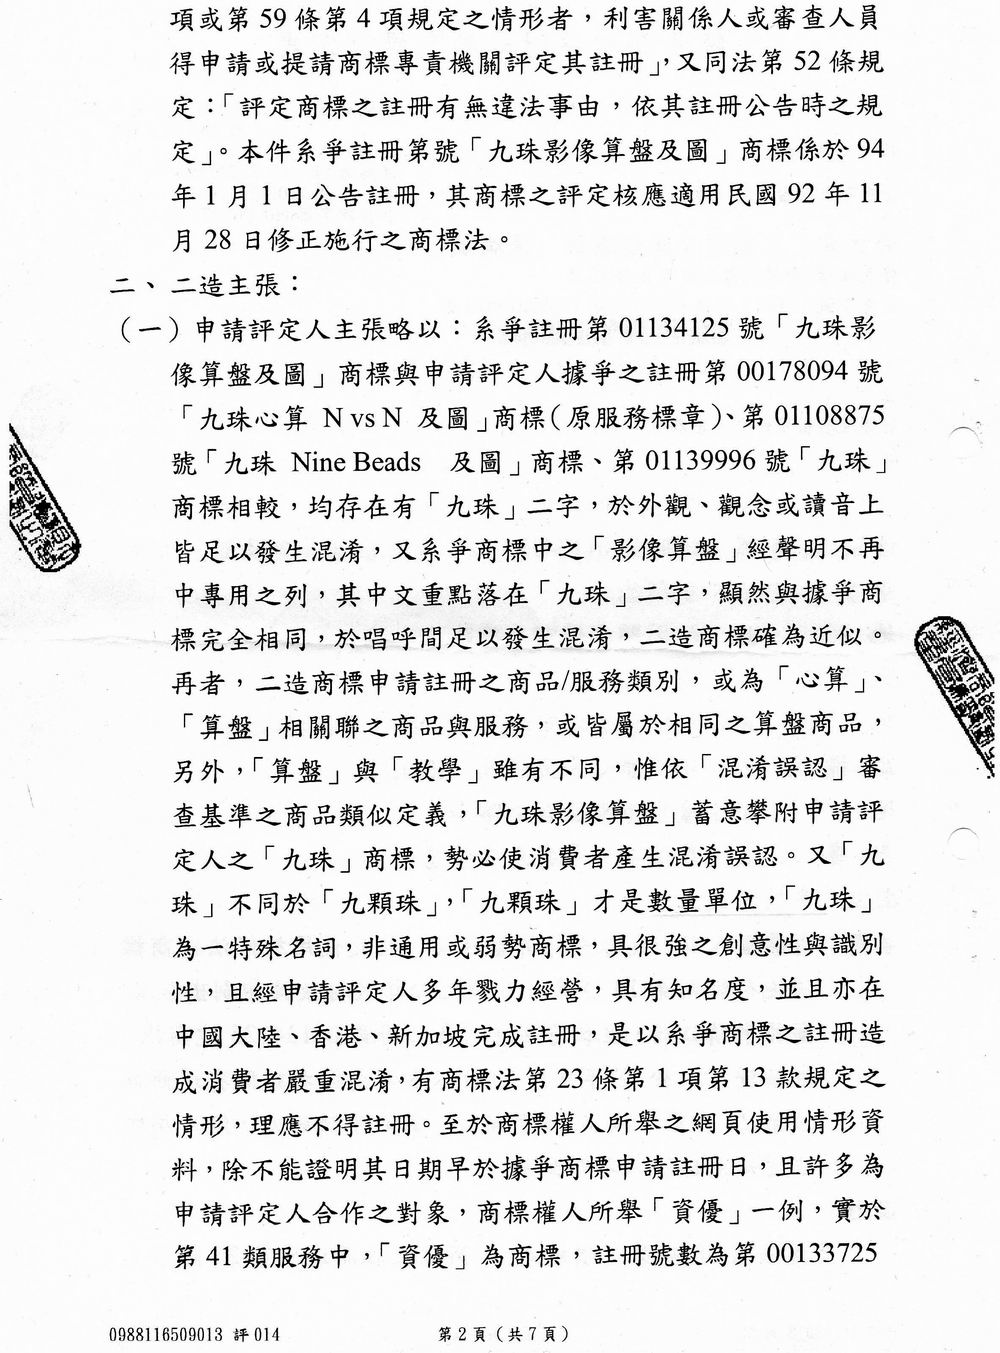 項或第 59 條第 4 項規定之情形者，利害關係人或審查人員
得申請或提請商標專責機關評定其註冊」，又同法第 52 條規
定：「評定商標之註冊有無違法事由，依其註冊公告時之規
定」。本件系爭註冊第號「九珠影像算盤及圖」商標係於 94
年 1 月 1 日公告註冊，其商標之評定核應適用民國 92 年 11
月 28 日修正施行之商標法。
二、二造主張：
（一）申請評定人主張略以：系爭註冊第 01134125 號「九珠影
像算盤及圖」商標與申請評定人據爭之註冊第 00178094 號
「九珠心算 N vs N 及圖」商標（原服務標章）、第 01108875
號「九珠 Nine Beads 及圖」商標、第 01139996 號「九珠」
商標相較，均存在有「九珠」二字，於外觀、觀念或讀音上
皆足以發生混淆，又系爭商標中之「影像算盤」經聲明不再
中專用之列，其中文重點落在「九珠」二字，顯然與據爭商
標完全相同，於唱呼間足以發生混淆，二造商標確為近似。
再者，二造商標申請註冊之商品/服務類別，或為「心算」、
「算盤」相關聯之商品與服務，或皆屬於相同之算盤商品，
另外，「算盤」與「教學」雖有不同，惟依「混淆誤認」審
查基準之商品類似定義，「九珠影像算盤」蓄意攀附申請評
定人之「九珠」商標，勢必使消費者產生混淆誤認。又「九
珠」不同於「九顆珠」，「九顆珠」才是數量單位，「九珠」
為一特殊名詞，非通用或弱勢商標，具很強之創意性與識別
性，且經申請評定人多年戮力經營，具有知名度，並且亦在
中國大陸、香港、新加坡完成註冊，是以系爭商標之註冊造
成消費者嚴重混淆，有商標法第 23 條第 1 項第 13 款規定之
情形，理應不得註冊。至於商標權人所舉之網頁使用情形資
料，除不能證明其日期早於據爭商標申請註冊日，且許多為
申請評定人合作之對象，商標權人所舉「資優」一例，實於
第 41 類服務中，「資優」為商標，註冊號數為第 00133725
0988116509013 評 014 第 2 頁（共 7 頁）